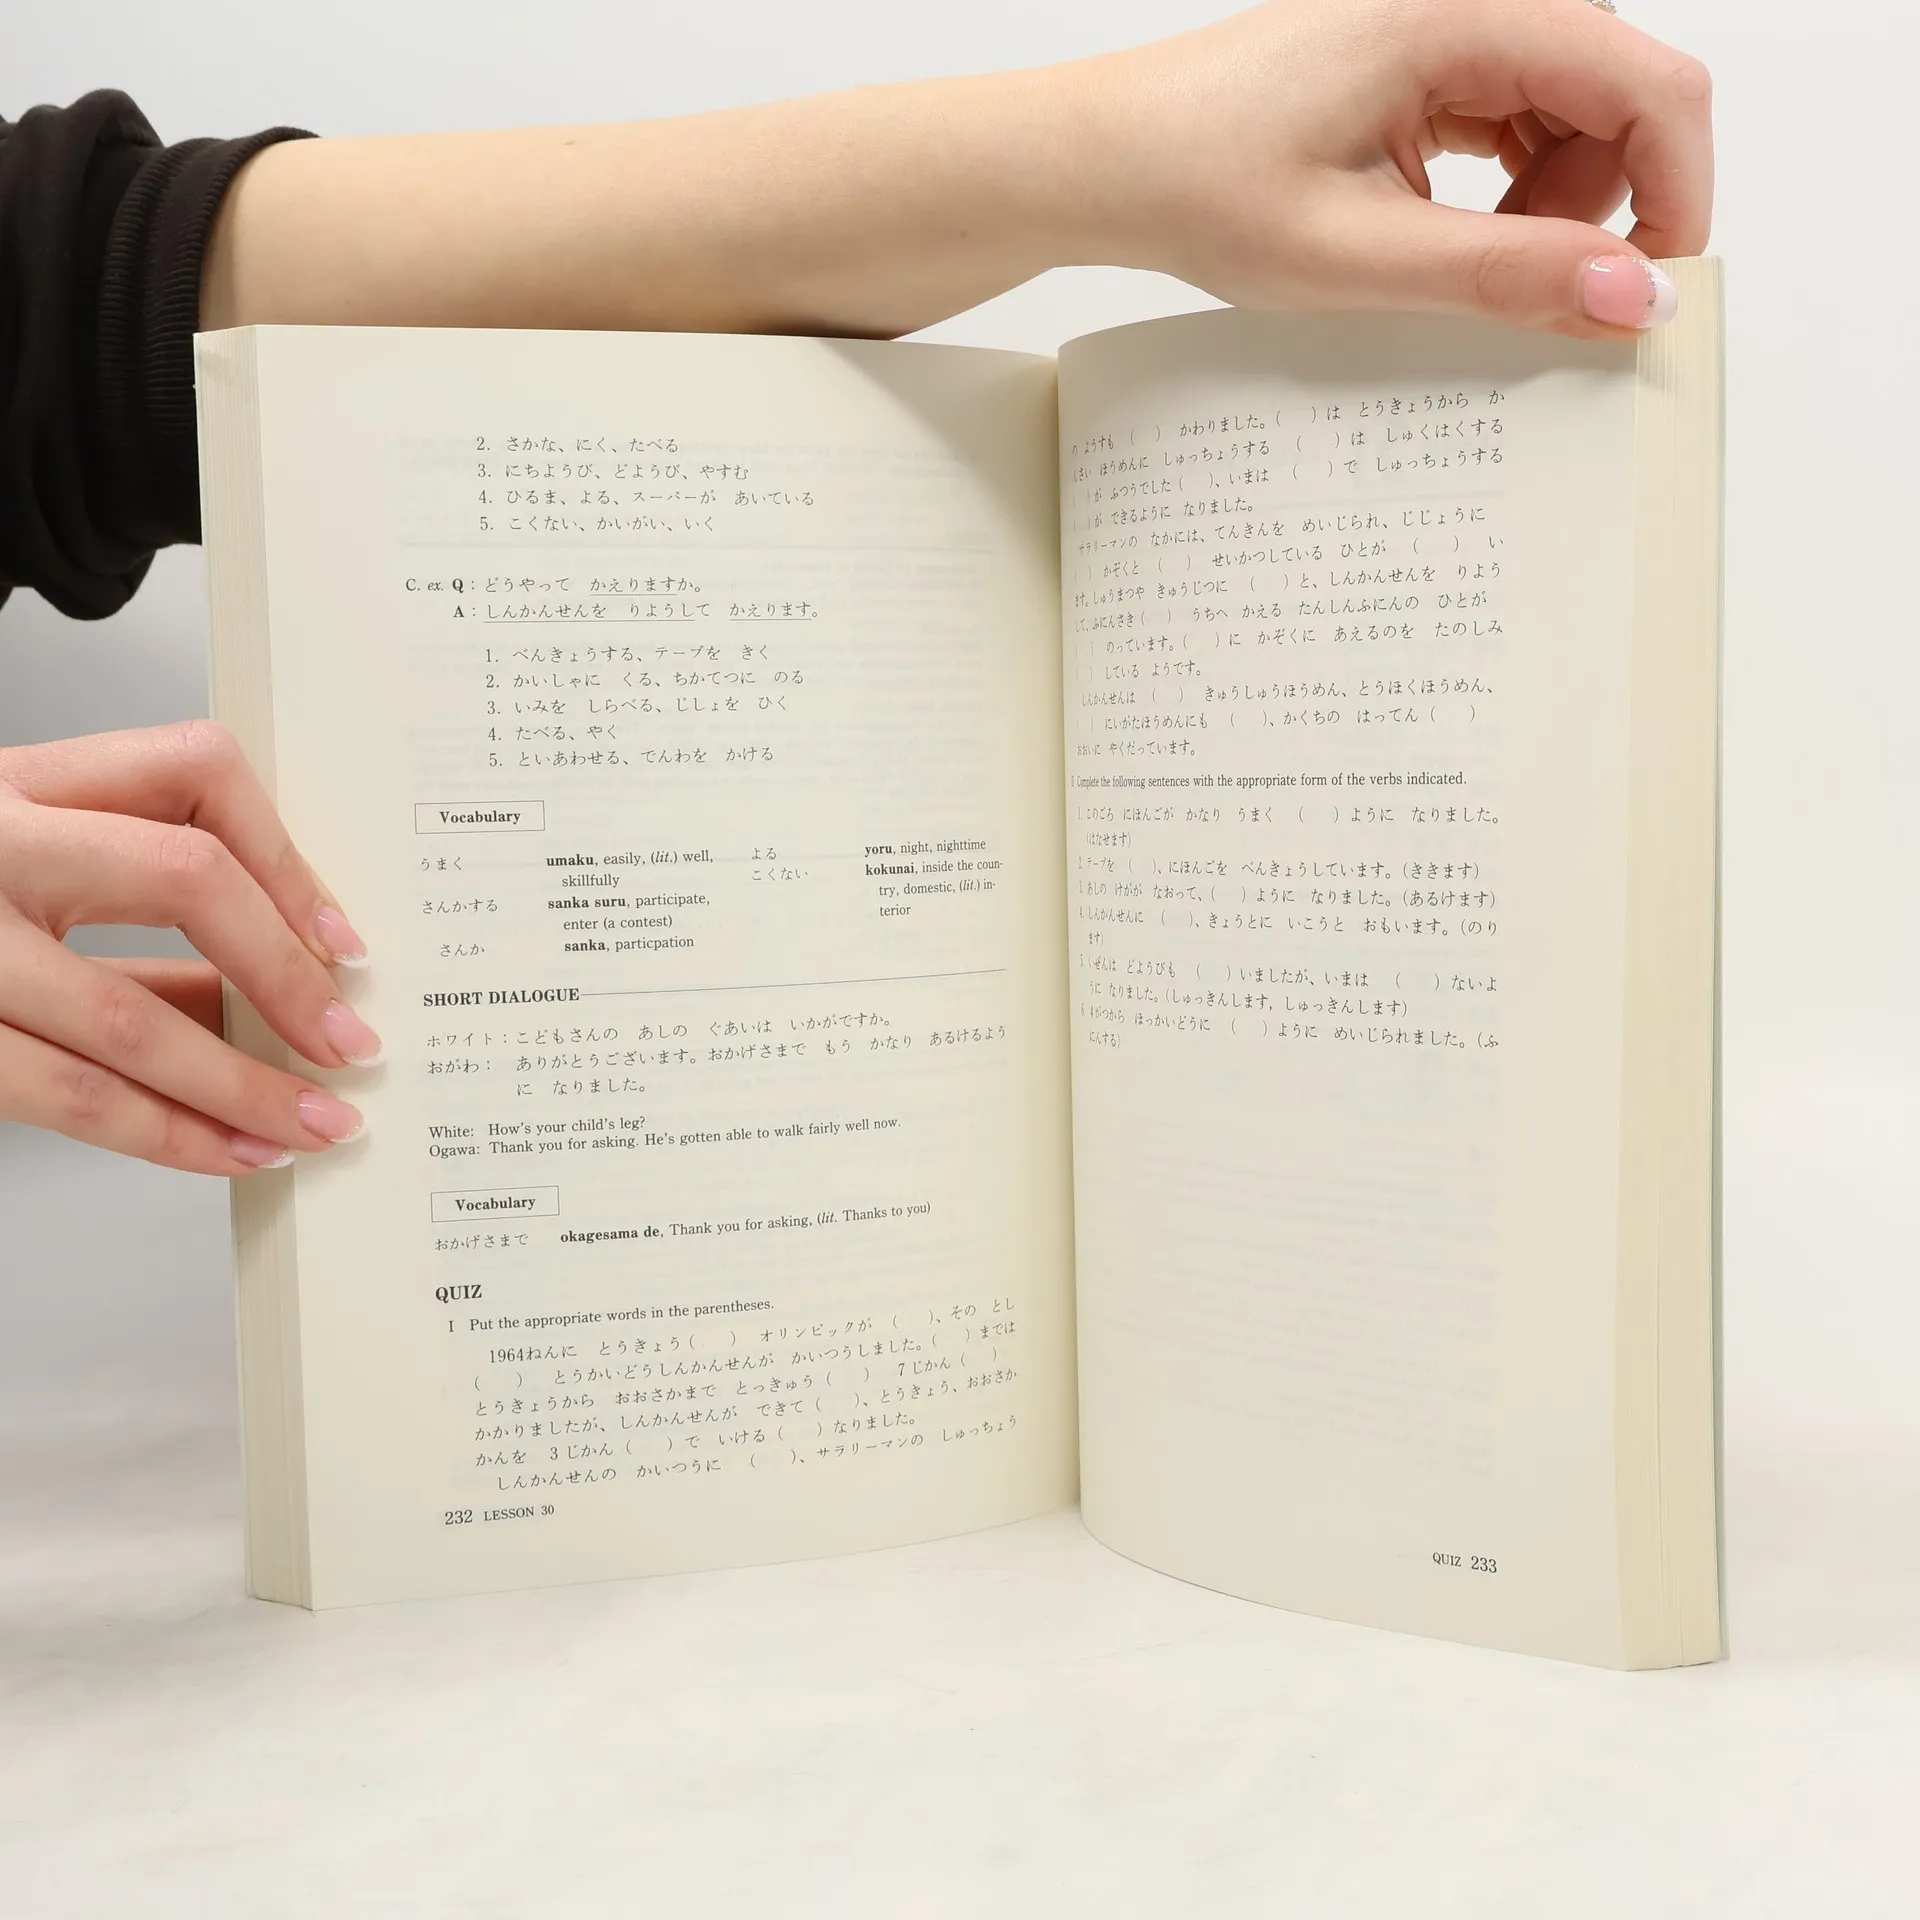 2. さかな、にく、たべる
3. にちようび、どようび、やすむ
4. ひるま、よる、スーパーが　あいている
5. こくない、かいがい、いく
C. ex. Q : どうやって　かえりますか。
A : しんかんせんを　りようして　かえります。
1. べんきょうする、テープを　きく
2. かいしゃに　くる、ちかてつに　のる
3. いみを　しらべる、じしょを　ひく
4. たべる、やく
5. といあわせる、でんわを　かける
Vocabulary
うまく　umaku, easily, (lit.) well,
skillfully
さんかする　sanka suru, participate,
enter (a contest)
さんか　sanka, particpation
よる　yoru, night, nighttime
こくない　kokunai, inside the coun-
try, domestic, (lit.) in-
terior
SHORT DIALOGUE
ホワイト：こどもさんの　あしの　ぐあいは　いかがですか。
おがわ：　ありがとうございます。おかげさまで　もう　かなり　あるけるよう
に　なりました。
White: How's your child's leg?
Ogawa: Thank you for asking. He's gotten able to walk fairly well now.
Vocabulary
おかげさまで　okagesama de, Thank you for asking, (lit. Thanks to you)
QUIZ
I Put the appropriate words in the parentheses.
1964ねんに　とうきょう（　）　オリンピックが　（　）、その　とし
（　）　とうかいどうしんかんせんが　かいつうしました。（　）までは
とうきょうから　おおさかまで　とっきゅう（　）　7じかん（　）
かかりましたが、しんかんせんが　できて（　）、とうきょう、おおさか
かんを　3じかん（　）で　いける（　）なりました。
しんかんせんの　かいつうに　（　）、サラリーマンの　しゅっちょう
232 LESSON 30
の　ようすも　（　）　かわりました。（　）は　とうきょうから　か
んさい　ほうめんに　しゅっちょうする　（　）は　しゅくはくする
（　）が　ふつうでした（　）、いまは　（　）で　しゅっちょうする
（　）が　できるように　なりました。
サラリーマンの　なかには、てんきんを　めいじられ、じじょうに
（　）　かぞくと　（　）　せいかつしている　ひとが　（　）　い
ます。しゅうまつや　きゅうじつに　（　）と、しんかんせんを　りよう
して、ふにんさき（　）　うちへ　かえる　たんしんふにんの　ひとが
（　）　のっています。（　）に　かぞくに　あえるのを　たのしみ
（　）　している　ようです。
しんかんせんは　（　）　きゅうしゅうほうめん、とうほくほうめん、
（　）　にいがたほうめんにも　（　）、かくちの　はってん（　）
おおいに　やくだっています。
II Complete the following sentences with the appropriate form of the verbs indicated.
1. このごろ　にほんごが　かなり　うまく　（　）ように　なりました。
（はなせます）
2. テープを　（　）、にほんごを　べんきょうしています。（ききます）
3. あしの　けがが　なおって、（　）ように　なりました。（あるけます）
4. しんかんせんに　（　）、きょうとに　いこうと　おもいます。（のり
ます）
5. いぜんは　どようびも　（　）いましたが、いまは　（　）ないよ
うに　なりました。（しゅっきんします，しゅっきんします）
6. 4がつから　ほっかいどうに　（　）ように　めいじられました。（ふ
にんする）
QUIZ 233